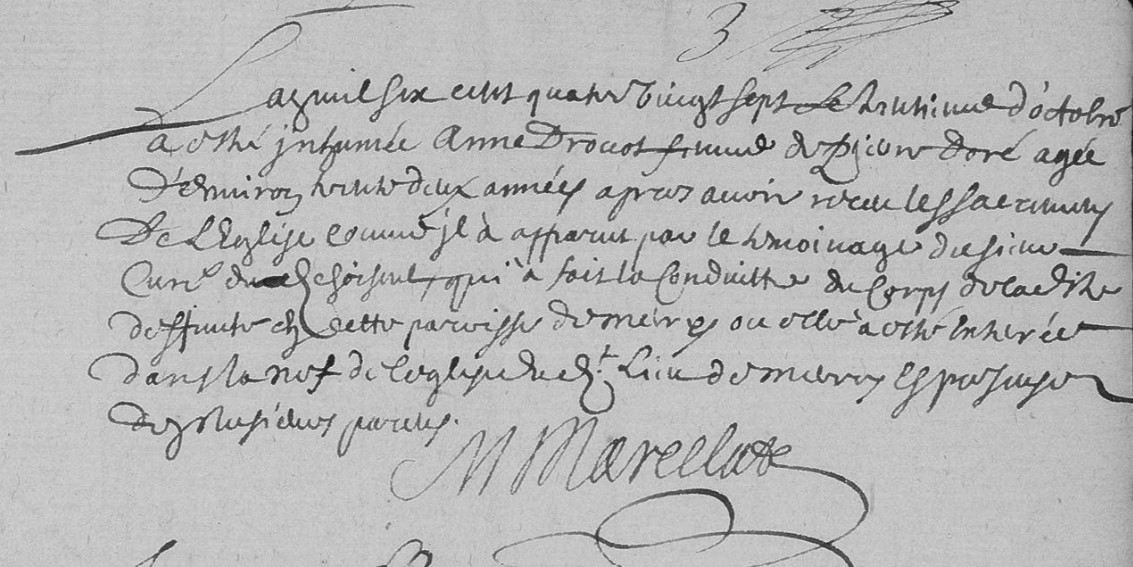 3
L'an mil six cent quatre vingt sept le huitieme d'octobre
a esté inhumée Anne Drouot femme de pierre doré agée
D'environ trente deux années apres avoir receu les sacremens
De L'Eglise comme jl à apparut par le temoinage du sieur
Curé de Choiseul, qui à fait la Conduitte du Corps de la dite
deffunte en cette paroisse de mervy ou elle à esté enterée
dans la nef de l'eglise du d.t Lieu de mervy es presence
de plusieurs parens.
M Marcellot